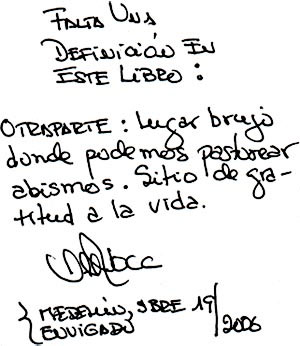 FALTA UNA
DEFINICIÓN EN
ESTE LIBRO:
OTRAPARTE: lugar brujo
donde podemos pastorear
abismos. Sitio de gra-
titud a la vida.
MEDELLÍN, SBRE 19/2006
ENVIGADO